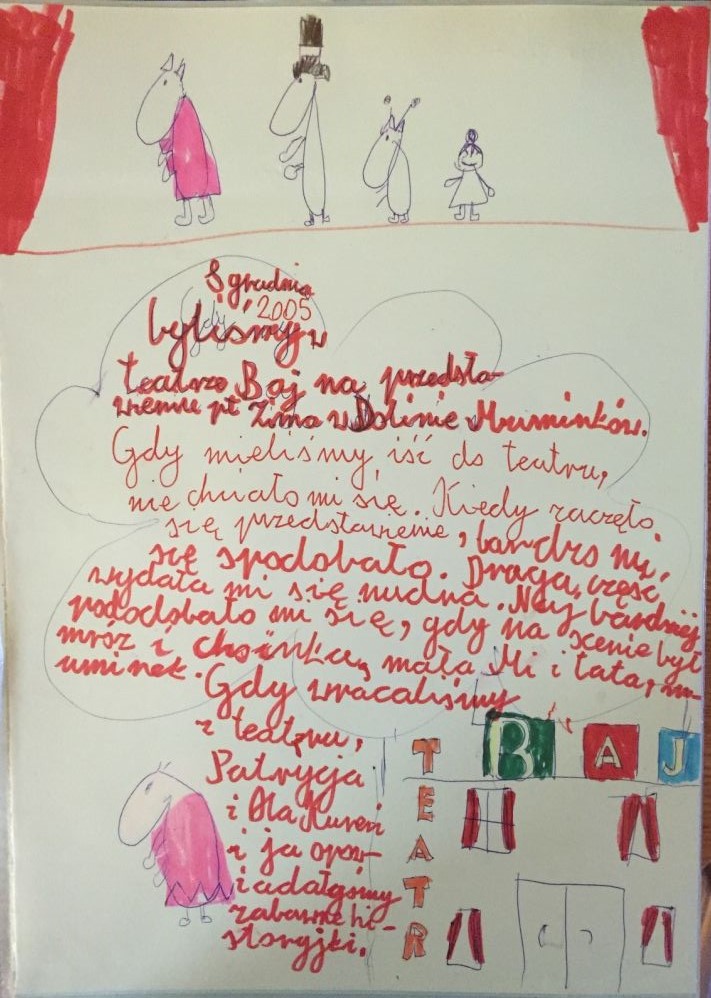 8 grudnia
2005
byliśmy w
teatrze Baj na przedsta-
wieniu pt Zima w Dolinie Muminków.
Gdy mieliśmy iść do teatru,
nie chciało mi się. Kiedy zaczęło
się przedstawienie, bardzo mi
się spodobało. Druga część
wydała mi się nudna. Naj bardziej
pododobało mi się, gdy na scenie był
mróz i choinka, mała Mi i tata, m-
uminek. Gdy wracaliśmy
z teatru,
Patrycja
i Ola Kureń
i ja opow-
iadałyśmy
zabawne hi-
storyjki.
BAJ
TEATR